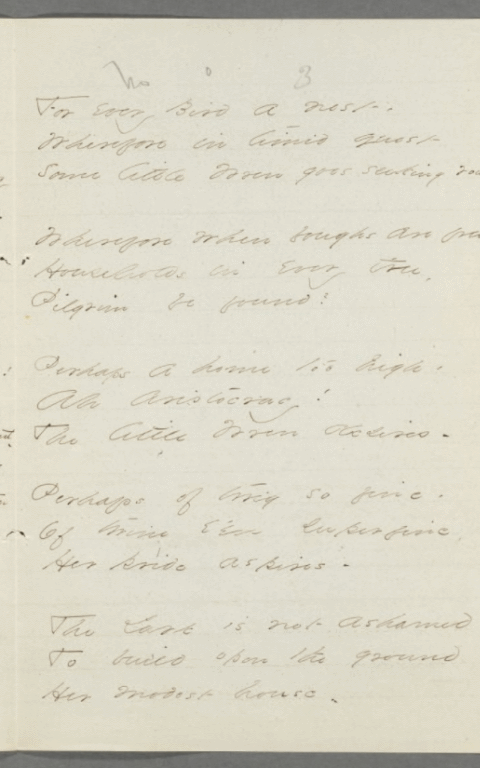 No 3
For Every Bird a nest -
Wherefore in timid quest
Some little Wren goes seeking
Wherefore when boughs are
Households in Every tree,
Pilgrim be found?
Perhaps a home too high -
Ah aristocracy!
The little Wren desires -
Perhaps of twig so fine -
Of twine E'en superfine,
Her pride aspires -
The Lark is not ashamed
To build upon the ground
Her modest house -